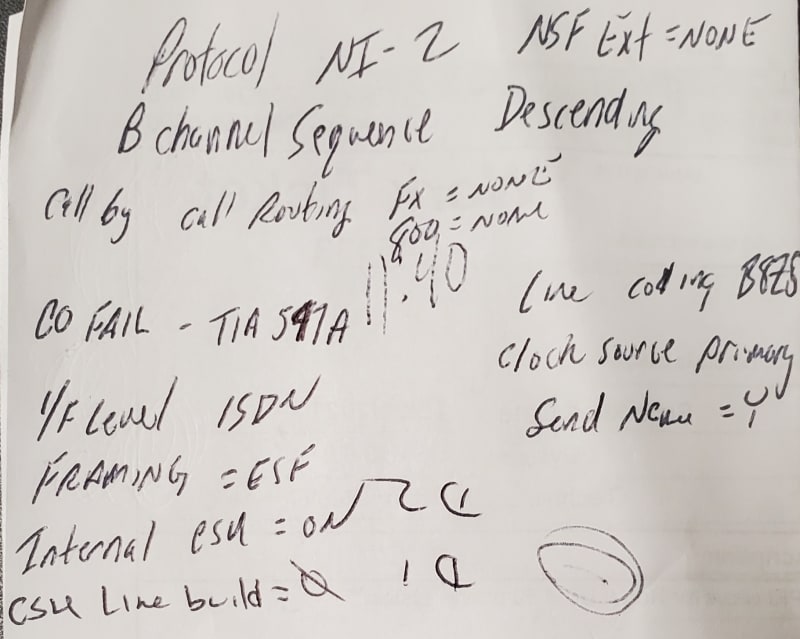 Protocol NI-2 NSF Ext = NONE
B channel Sequence Descending
Call by call Routing FX = NONE
800 = NONE
11.40
CO FAIL - TIA 547A
Line coding B8ZS
Clock source primary
I/F Level ISDN
Send Name = Y
FRAMING = ESF
Internal CSU = ON
CSU Line build = 0